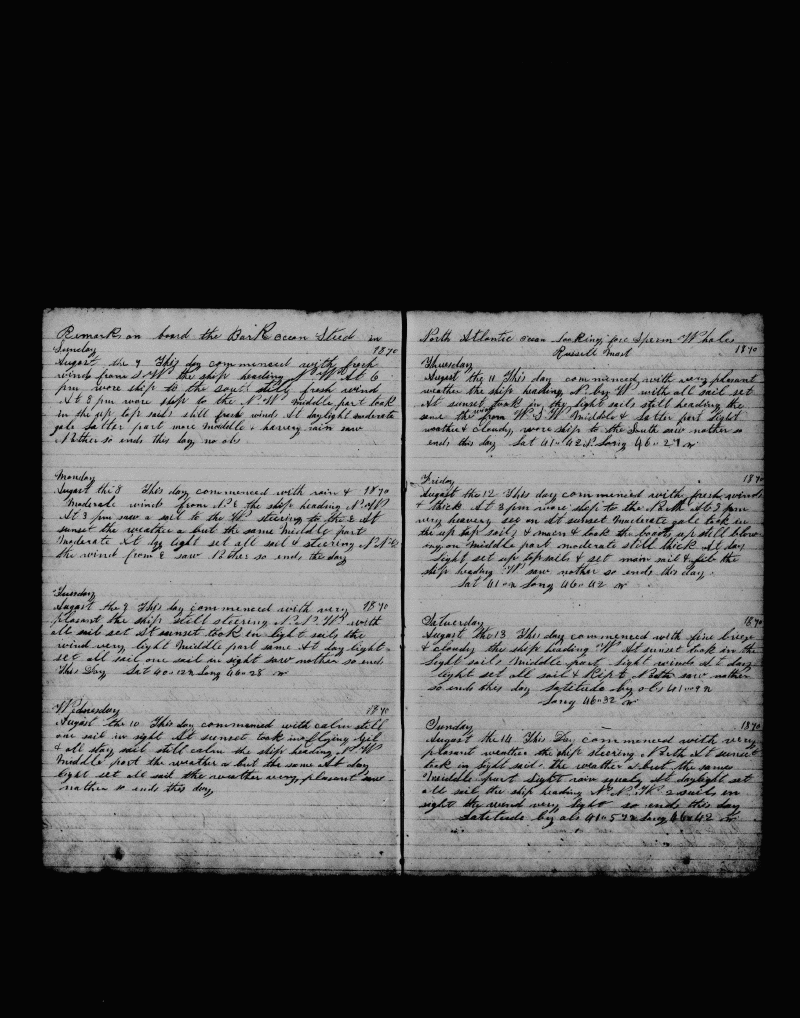 Remarks on board the Bark ocean Steed in
Sunday 1870
August the 7 This day commenced with fresh
wind from S.W. the ship heading N.W. At 6
pm wore ship to the south fresh wind
At 8 pm wore ship to the N.W. Middle part took
in the up top sails still fresh wind At daylight moderate
gale Latter part more moddle & heavey rain saw
Nother so ends this day no obs
Monday
August the 8 This day commenced with rain & 1870
Moderate winds from N.E the ship heading N.W
At 3 pm saw a sail to the W. steering to the E At
sunset the weather a but the same Middle part
Moderate At day light set all sail & steering N.N.W
the wind from E saw Nother so ends the day
Tuesday
August the 9 This day commenced with very 1870
pleasant the ship still steering N.N.W. with
all sail set At sunset took in light sails the
wind very light Middle part same At day light
set all sail one sail in sight saw nother so end
This Day Lat 40..12 N Long 46..28 W
Wednesday 1870
August the 10 This day commenced with calm still
one sail in sight At sunset took in flying Geb
& all stay sail still calm the ship heading N.W
Middle part the weather a but the same At day
light set all sail the weather very pleasant saw
nother so ends this day
North Atlantic ocean looking for Sperm Whales
Russell Mast 1870
Thursday
August the 11 This day commenced with very pleasant
weather the ship heading N. by W with all sail set
At sunset took in thy light sails still heading the
same the wind from W.S.W. Middle & Latter part light
weather & cloudy, wore ship to the South saw nother so
ends this day Lat 41..42 N Long 46..27 W
Friday 1870
August the 12 This day commenced with fresh winds
& thick At 3 pm wore ship to the N.W. At 5 pm
very heavery sea on At sunset Moderate gale took in
the up top sails & main & took the boats up still blow
ing on Middle part moderate still thick At day
light set up topsails & set main sail & jib the
ship heading W saw nother so ends this day.
Lat 41.. N Long 46..42 W
Saturday 1870
August the 13 This day commenced with fine breeze
& cloudy the ship heading W At sunset took in the
light sails Middle part light winds At day
light set all sail & Kept North saw nother
so ends this day Latitude by obs 41..09 N
Long 46..32 W
Sunday 1870
August the 14 This Day commenced with very
pleasant weather the ship steering North At sunset
took in light sail the weather a but the same
Middle part light rain squaly At daylight set
all sail the ship heading N.N.W. 2 sails in
sight the wind very light so ends this day
Latitude by obs 41..57 N Long 46..42 W